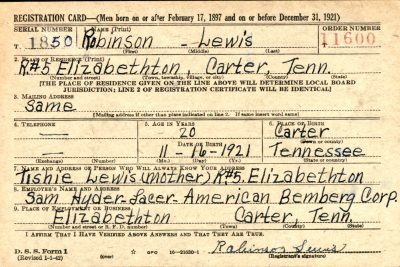 REGISTRATION CARD—(Men born on or after February 17, 1897 and on or before December 31, 1921)
SERIAL NUMBER 1. NAME (Print) ORDER NUMBER
T 1850 Robinson - Lewis 11600
(First) (Middle) (Last)
2. PLACE OF RESIDENCE (Print)
R#5 Elizabethton, Carter, Tenn.
(Number and street) (Town, township, village, or city) (County) (State)
[THE PLACE OF RESIDENCE GIVEN ON THE LINE ABOVE WILL DETERMINE LOCAL BOARD
JURISDICTION; LINE 2 OF REGISTRATION CERTIFICATE WILL BE IDENTICAL]
3. MAILING ADDRESS
Same
(Mailing address if other than place indicated on line 2. If same insert word same)
4. TELEPHONE 5. AGE IN YEARS 6. PLACE OF BIRTH
— 20 Carter
DATE OF BIRTH (Town or county)
— 11 - 16 - 1921 Tennessee
(Exchange) (Number) (Mo.) (Day) (Yr.) (State or country)
7. NAME AND ADDRESS OF PERSON WHO WILL ALWAYS KNOW YOUR ADDRESS
Tishie Lewis (mother) R#5 Elizabethton
8. EMPLOYER'S NAME AND ADDRESS
Sam Hyder-Lacer-American Bemberg Corp.
9. PLACE OF EMPLOYMENT OR BUSINESS
Elizabethton Carter, Tenn.
(Number and street or R. F. D. number) (Town) (County) (State)
I AFFIRM THAT I HAVE VERIFIED ABOVE ANSWERS AND THAT THEY ARE TRUE.
D. S. S. Form 1 Robinson Lewis
(Revised 1-1-42) ☆ GPO 16—21630-1 (Registrant's signature)